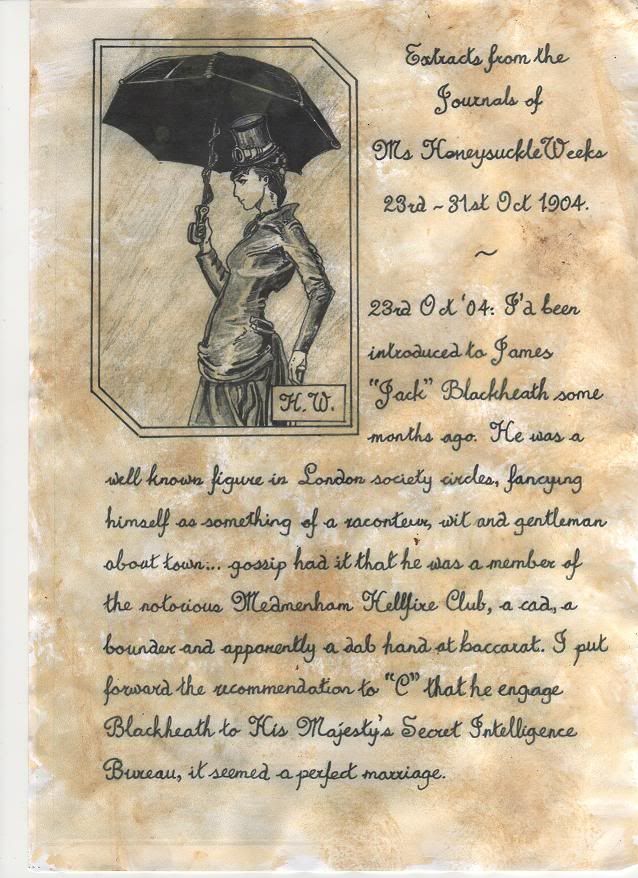 Extracts from the
Journals of
Ms Honeysuckle Weeks
23rd ~ 31st Oct 1904.
~
23rd Oct '04: I'd been
introduced to James
"Jack" Blackheath some
months ago. He was a
H.W.
well known figure in London society circles, fancying
himself as something of a raconteur, wit and gentleman
about town... gossip had it that he was a member of
the notorious Medmenham Hellfire Club, a cad, a
bounder and apparently a dab hand at baccarat. I put
forward the recommendation to "C" that he engage
Blackheath to His Majesty's Secret Intelligence
Bureau, it seemed a perfect marriage.